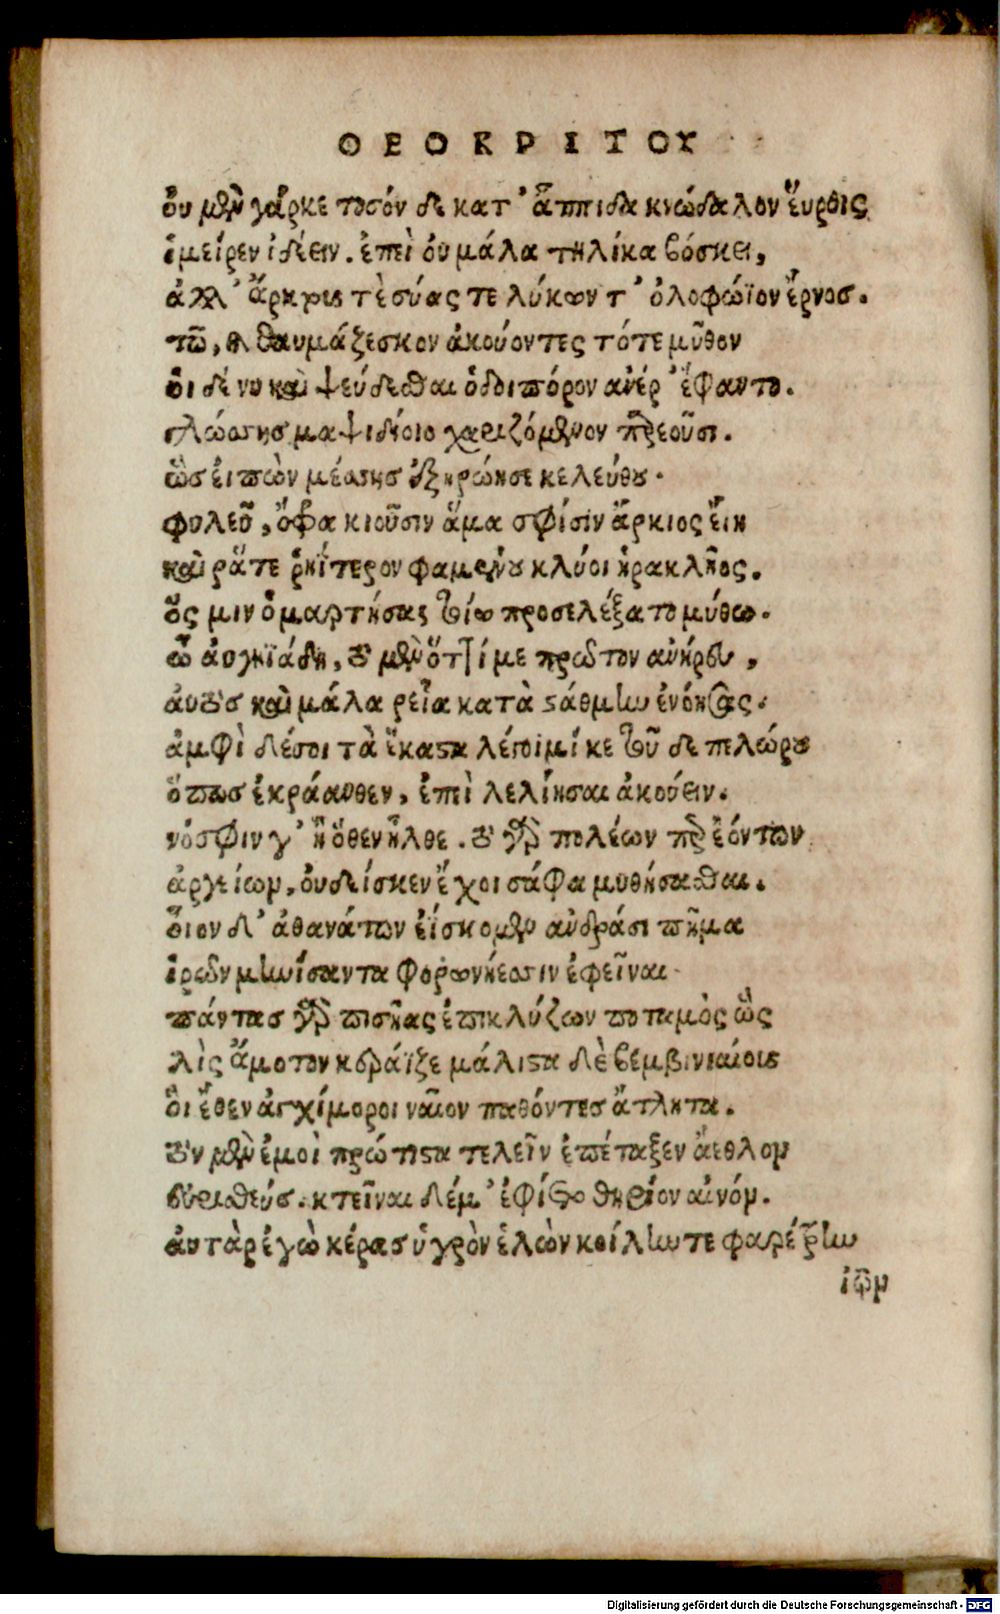 ΘΕΟΚΡΙΤΟΥ
ὀυ μὲν γάρκε τοσόν δε κατ' ἄππιδα κνώδαλον ἕυροις
ἱμείρεν ἰδέειν. ἐπεὶ ὀυ μάλα τηλίκα βόσκει,
ἀλλ' ἄρκτους τὲ σύας τε λύκων τ' ὀλοφώϊον ἔρνος.
τῶ, θαυμάζεσκον ἀκούοντες τότε μῦθον
ὁι δέ νυ καὶ ψεύδεσθαι ὁδοιπόρον ἀνέρ' ἔφαντο.
γλώσσης μαψιδίοιο χαριζόμενον παρεοῦσι.
ὣς ἐιπὼν μέσσης ἐξηρώησε κελεύθου.
φυλεῦ, ὄφρα κιοῦσιν ἅμα σφίσιν ἄρκιος ἔιη
καὶ ῥάτε ῥηΐτερον φαμένου κλύοι ἡρακλῆος.
ὅς μιν ὁμαρτήσας τοίω προσελέξατο μύθω.
ὦ ἀυγηϊάδη, τὸ μὲν ὅττί με πρῶτον ἀνήρευ,
ἀυτὸς καὶ μάλα ῥεῖα κατὰ στάθμην ἐνόησας.
ἀμφὶ δέσοι τὰ ἕκαστα λέγοιμί κε τοῦ δε πελώρου
ὅπως ἐκράανθεν, ἐπεὶ λελίησαι ἀκούειν.
νόσφιν γ' ἢ ὅθεν ἦλθε. τὸ γὰρ πολέων παρεόντων
ἀργείων, ὀυδείσκεν ἔχοι σάφα μυθήσασθαι.
ὅιον δ' ἀθανάτων ἐίσκομεν ἀνδράσι πῆμα
ἱρῶν μηνίσαντα φορωνήεσσιν ἐφεῖναι.
πάντας γὰρ πισῆας ἐπικλύζων ποταμὸς ὣς
λὶς ἄμοτον κεράϊζε μάλιστα δὲ βεμβιναίους
ὃι ἕθεν ἀγχίμοροι ναῖον παθόντες ἄτλητα.
τὸν μὲν ἐμοὶ πρώτιστα τελεῖν ἐπέταξεν ἄεθλον
εὐρυσθεύς. κτεῖναι δέμ' ἐφίετο θηρίον αἰνόν.
ἀυτὰρ ἐγὼ κέρας ὑγρὸν ἑλὼν κοίλην τε φαρέτρην
ἰῶν
Digitalisierung gefördert durch die Deutsche Forschungsgemeinschaft - DFG